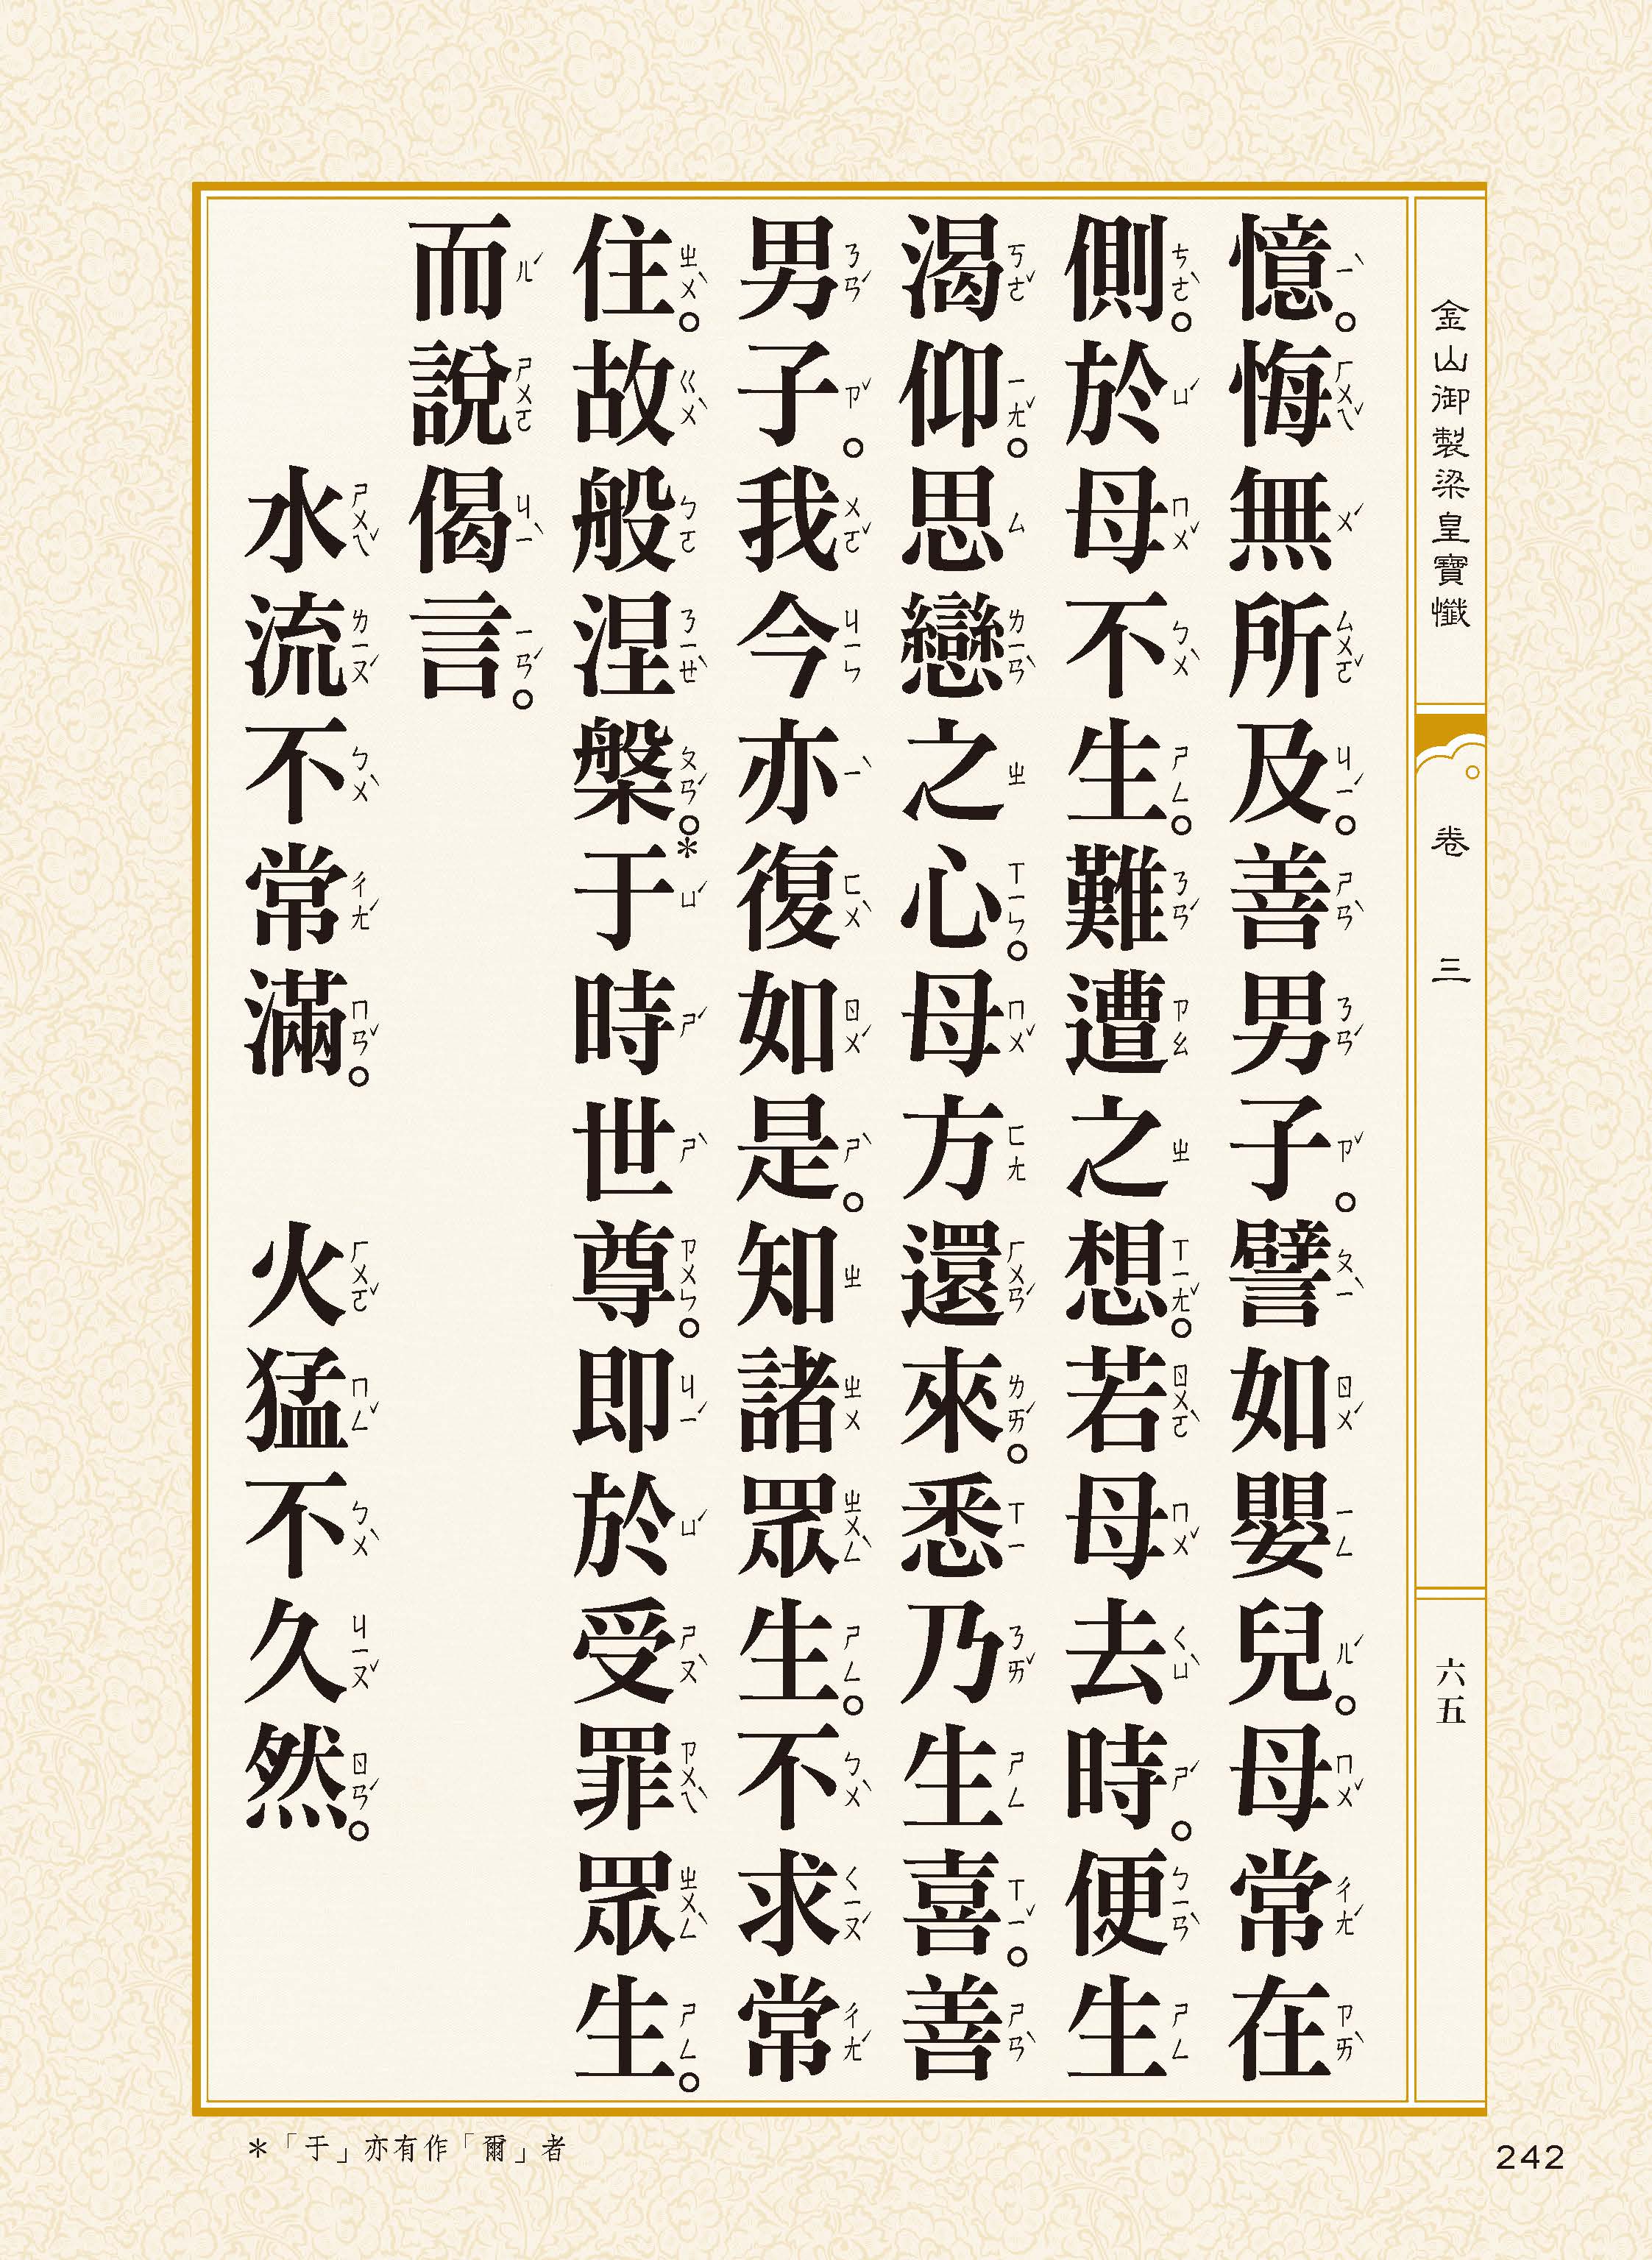 金山御製梁皇寶懺
卷 三
六五
憶。悔無所及。善男子。譬如嬰兒。母常在
側。於母不生。難遭之想。若母去時。便生
渴仰。思戀之心。母方還來。悉乃生喜。善
男子。我今亦復如是。知諸眾生。不求常
住。故般涅槃。*于時世尊。即於受罪眾生。
而說偈言。
水流不常滿。 火猛不久然。
＊「于」亦有作「爾」者
242